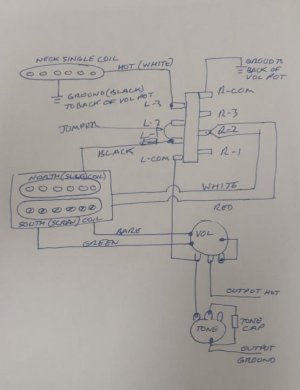 NECK SINGLE COIL
HOT (WHITE)
GROUND TO
BACK OF
VOL POT
GROUND (BLACK)
TO BACK OF VOL POT
L-3
R-COM
R-3
JUMPER
L-2
R-2
L-1
BLACK
L-COM
R-1
NORTH (SLUG) COIL
WHITE
RED
SOUTH (SCREW) COIL
BARE
GREEN
VOL
OUTPUT HOT
TONE
TONE
CAP
OUTPUT
GROUND